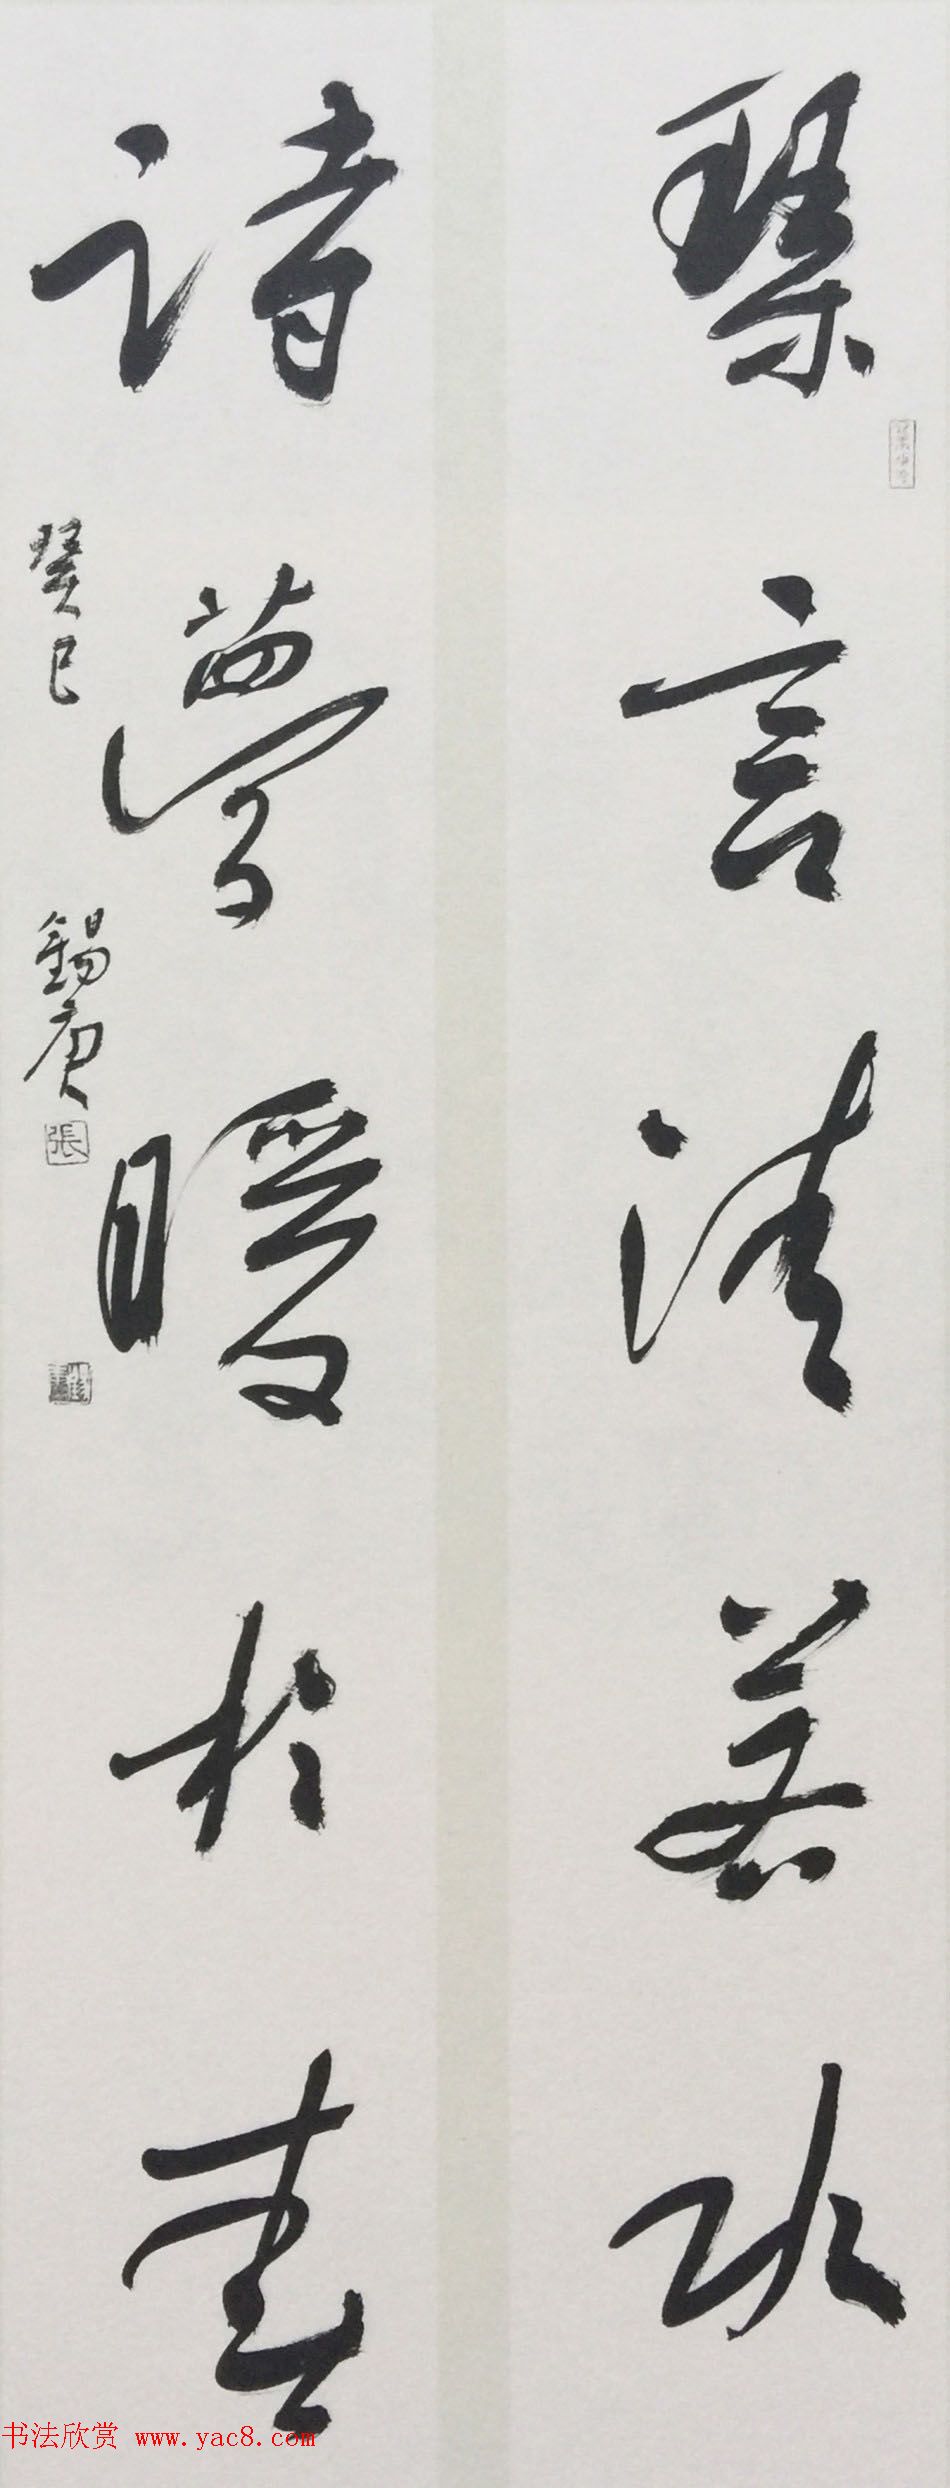 琴言清若水
詩夢暖於春
癸巳
錫庚
張
书法欣赏 www.yac8.com